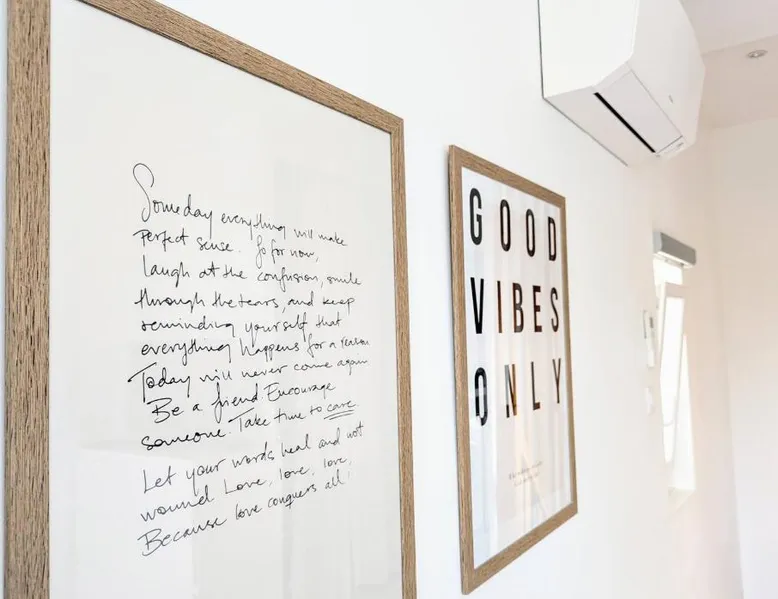 Someday everything will make
Perfect sense. So for now,
laugh at the confusion, smile
through the tears, and keep
reminding yourself that
everything happens for a reason
Today will never come again
Be a friend Encourage
someone. Take time to care
Let your words heal and not
wound Love, love, love,
Because love conquers all!
GOOD
VIBES
ONLY